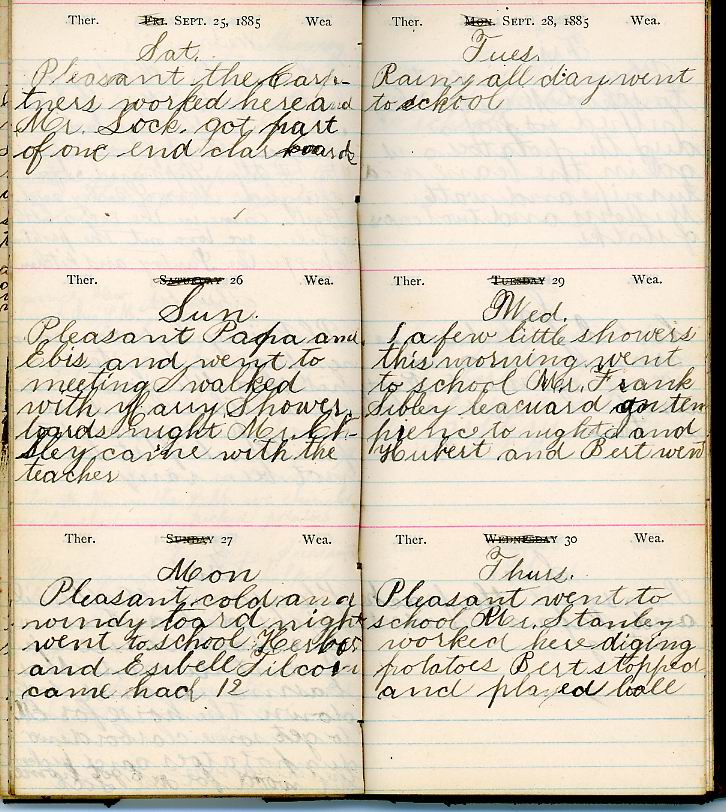 Ther. Fri. Sept. 25, 1885 Wea
Sat.
Pleasant the Carp-
tners worked here and
Mr. Lock. got part
of one end clarboards
Ther. Saturday 26 Wea.
Sun.
Pleasant Papa and
Ebis and went to
meeting I walked
with Harry Shower
tords night Mr.
sley came with the
teacher
Ther. Sunday 27 Wea.
Mon
Pleasant cold and
windy toard night
went to school
and Esibell Filcon
came had 12
Ther. Mon. Sept. 28, 1885 Wea.
Tues.
Rainy all day went
to school
Ther. Tuesday 29 Wea.
Wed.
a few little showers
this morning went
to school Mr. Frank
Sibley leacuard on tem
prence to night and
Hubert and Bert went
Ther. Wednesday 30 Wea.
Thurs.
Pleasant went to
school Mr. Stanley
worked here diging
potatoes Bert stopped
and played balle